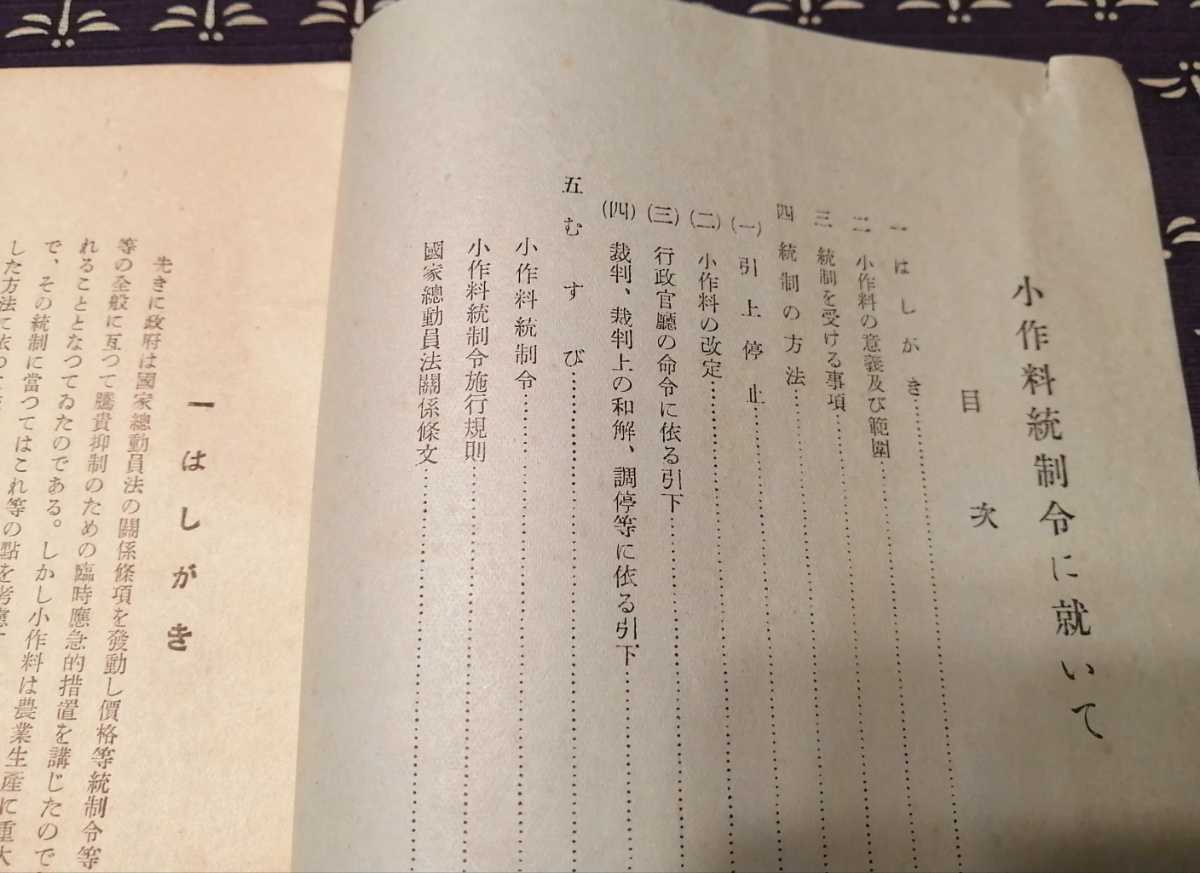 小作料統制令に就いて
目次
一 はしがき
二 小作料の意義及び範圍
三 統制を受ける事項
四 統制の方法
(一) 引上停止
(二) 小作料の改定
(三) 行政官廳の命令に依る引下
(四) 裁判、裁判上の和解、調停等に依る引下
五 むすび
小作料統制令
小作料統制令施行規則
國家總動員法關係條文
一 はしがき
先きに政府は國家總動員法の關係條項を發動し價格等統制令等
等の全般に亙つて騰貴抑制のための臨時應急的措置を講じたので
れることとなつてゐたのである。しかし小作料は農業生産に重大
で、その統制に當つてはこれ等の點を考慮
した方法に依つ